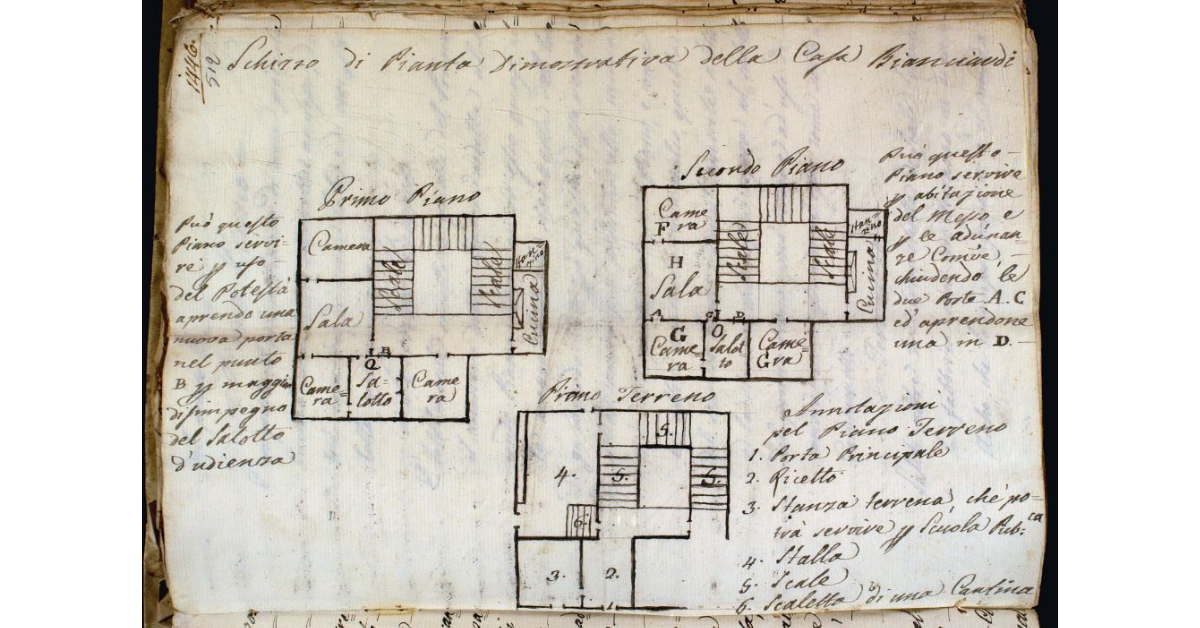 1446.
512
Schizzo di Pianta Dimostrativa della Casa Bianciardi
Primo Piano
Può questo
Piano servi-
re p uso
del Potestà
aprendo una
nuova porta
nel punto
B p maggior
disimpegno
del Salotto
d'udienza
Camera
Scale
Scale
Stan-
zino
Cucina
Sala
B
Q
Came=
ra
Sa-
lotto
Came
ra
Secondo Piano
Può questo
Piano servire
p abitazione
del Messo e
p le adunan-
ze Comve,
chiudendo le
due Porte A. C
ed' aprendone
una in D.
Came
F ra
H
Sala
Scale
Scale
Stan
zino
Cucina
A
C
D
G
Came
ra
O
Salot
to
Came=
G ra
Piano Terreno
5.
4.
5.
5.
6.
3.
2.
1.
Annotazioni
pel Piano Terreno
1. Porta Principale
2. Ricetto
3. Stanza terrena, che po-
trà servire p Scuola Pub:ca
4. Stalla
5. Scale
6. Scaletta di una Cantina